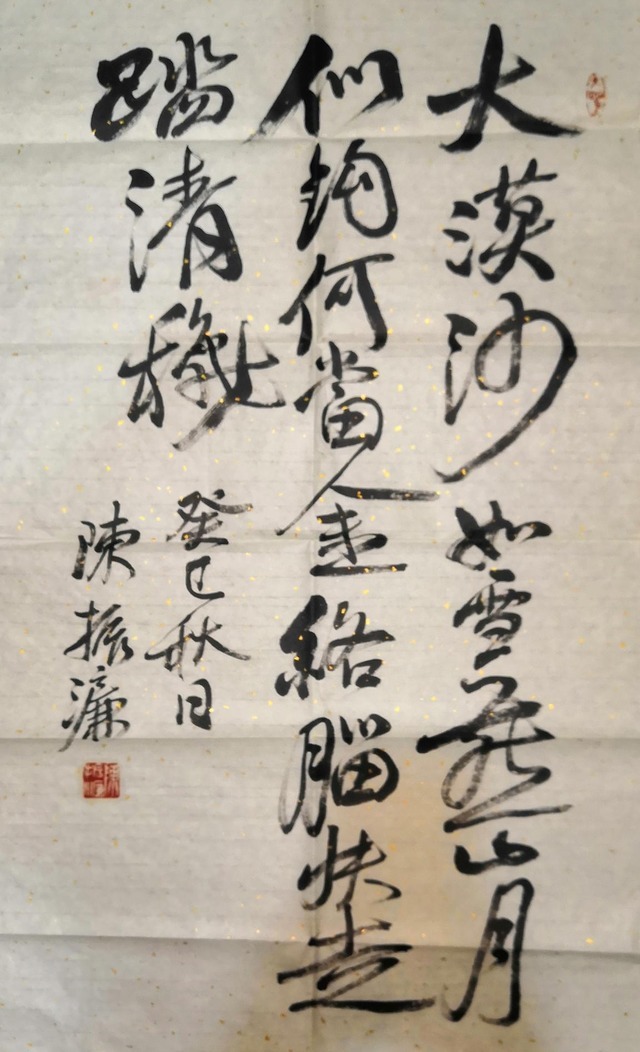 大漠沙如雪燕山月
似鈎何當金絡腦快走
踏清秋
癸巳秋日
陳振濂